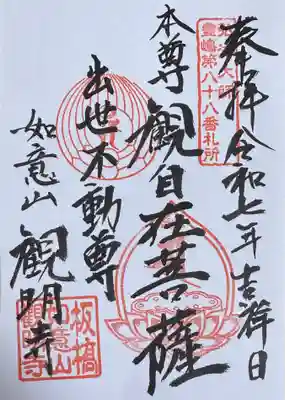 奉拝 令和七年吉祥日
霊場第八十八番札所
本尊 観自在菩薩
出世不動尊
如意山 観明寺
板橋
如意山
観明寺